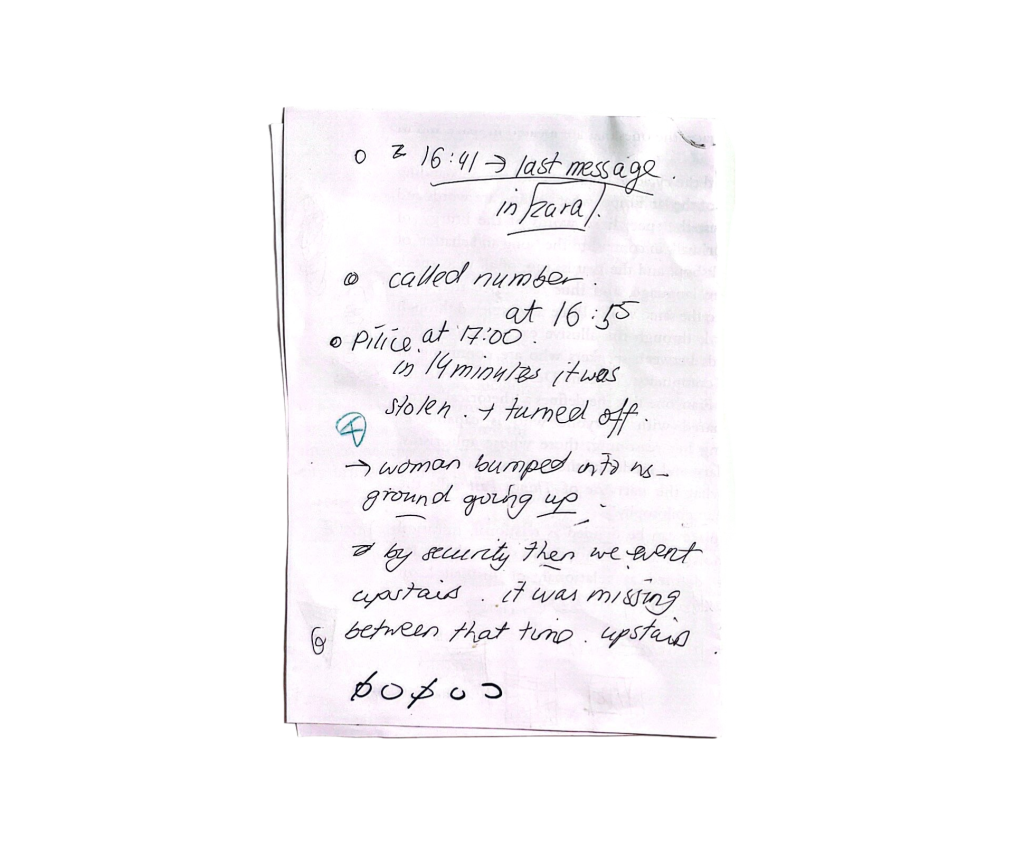 16:41 → last message.
in zara.
called number.
at 16:55
Pilice. at 17:00.
in 14 minutes it was
stolen. + turned off.
→ woman bumped into us -
ground going up.
by security then we went
upstairs. it was missing
between that time. upstairs